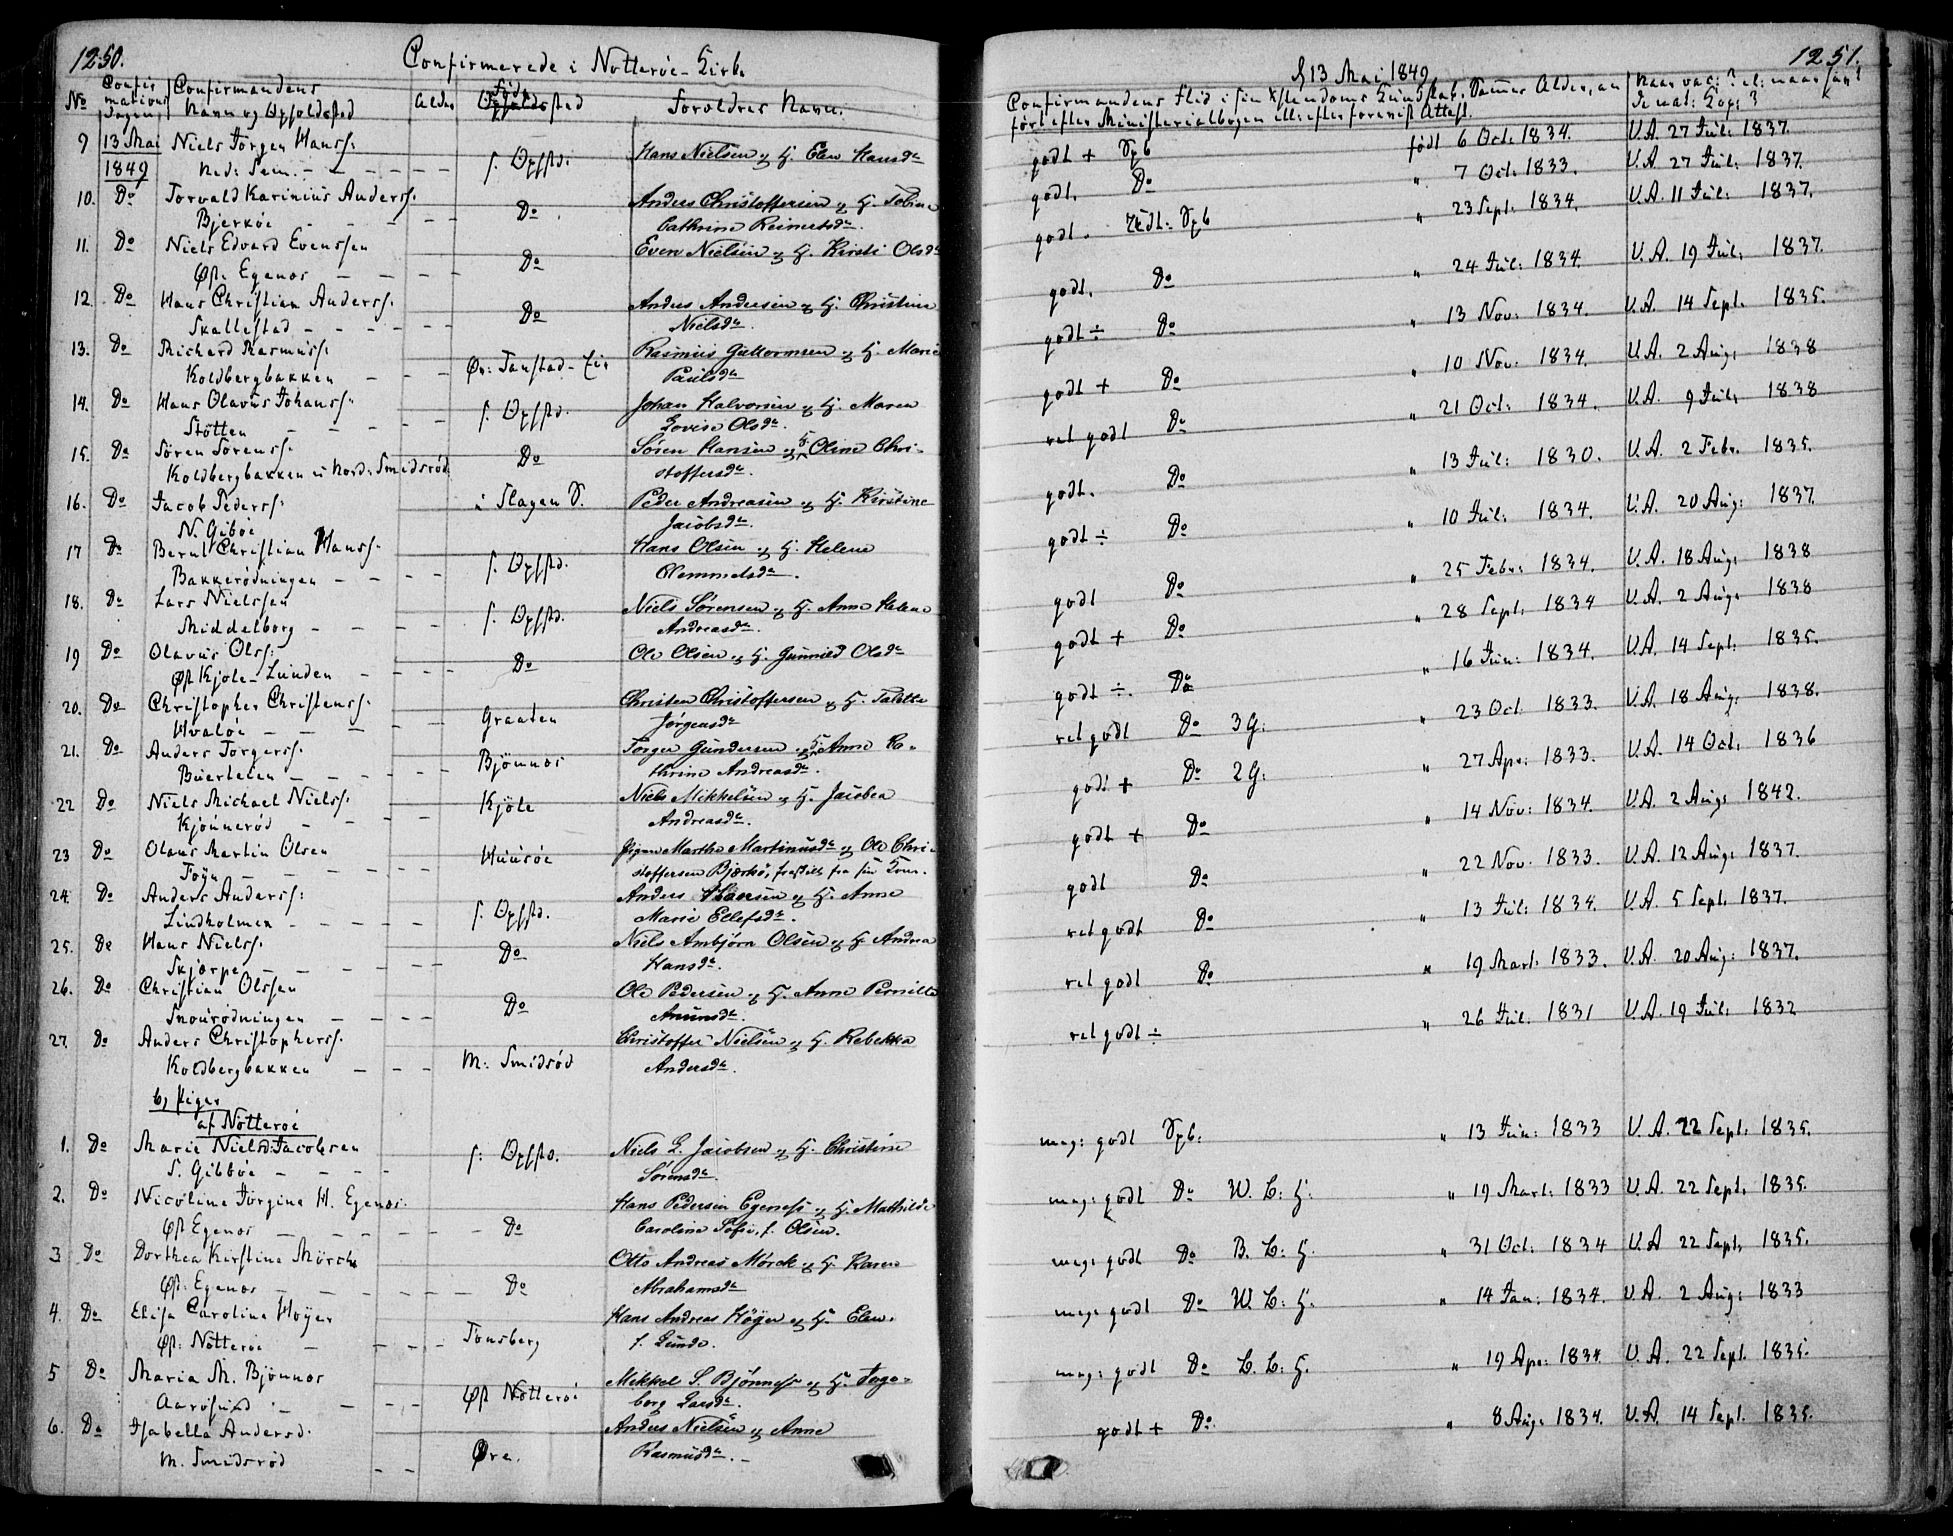 1250.
Confirmerede i Nøtterøe-Kirke
No
Confirmations Dagen,
Confirmandens Navn og Opholdsted
Alder
Føde
Opholdssted
Foreldres Navn.
9 13 Mai 1849 Niels Jørgen Hanss:
Ned: Sem.
s. Opstd.
Hans Nielsen og H. Elen Hansdr
10. Do Torvald Karinius Anderss.
Bjerkøe
Do
Anders Christoffersen og H. Tobine
Cathrine Reinertsdr.
11. Do Niels Edvard Evenssen
Øst: Egenes
Do
Even Nielsen og H. Kirsti Olsdr
12. Do Hans Christian Anderss.
Skallestad
Do
Anders Andersen og H. Christine
Nielsdr.
13. Do Richard Rasmuss:
Koldbergbakken
Øv: Tanstad-Eie
Rasmus Guttormsen og H. Marie
Paulsdr
14. Do Hans Olavus Johanss:
Støtten
s. Opstd.
Johan Halvorsen og H. Maren
Lovise Olsdr.
15. Do Søren Sørenss.
Koldbergbakken u: Nord: Smidsrød
Do
Søren Hansen og H. Oline Chri-
stoffersdr.
16. Do Jacob Pederss:
N. Gibøe
i Slagen S.
Peder Andreasen og H. Kirstine
Jacobsdr.
17 Do Bernt Christian Hanss:
Bakkerødningen
s. Opstd.
Hans Olsen og H. Helene
Clemmetsdr.
18. Do Lars Nielssen
Middelborg
s. Opstd.
Niels Sørensen og H. Anne Helene
Andreasdr.
19 Do Olavus Olss:
Øst Kjøle-Lunden
Do
Ole Olsen og H. Gunnild Olsdr
20. Do Christopher Christenss.
Hvaløe
Graaten
Christen Christoffersen og H. Talette
Jørgensdr
21. Do Anders Torgerss.
Buerteien
Bjønnes
Torger Gundersen og H. Anne Ca-
thrine Andreasdr.
22 Do Niels Michael Nielss:
Kjønnerød
Kjøle
Niels Mikkelsen og H. Jacobea
Andreasdr.
23 Do Olaus Martin Olsen
Føyn
Huusøe
Pigen Marthe Martinusdr og Ole Chri-
stoffersen Bjerkø, fraskilt fra sin Kone.
24. Do Anders Anderss:
Lindholmen
s. Opstd.
Anders Iversen og H. Anne
Marie Ellefsdr.
25. Do Hans Nielss.
Skjærpe
Do
Niels Ambjørn Olsen og H. Andrea
Hansdr.
26. Do Christian Olssen
Snouerødningen
Do
Ole Pedersen og H. Anne Pernille
Amunsdr.
27. Do Anders Christopherss.
Koldbergbakken
M: Smidsrød
Christoffer Nielsen og H. Rebekka
Andersdr.
b, Piger
af Nøtterøe
1. Do Marie Nielsd: Jacobsen
S. Gibbøe
s: Opstd.
Niels L. Jacobsen og H. Christine
Sørensdr.
2. Do Nicoline Jørgine H. Egenes.
Øst Egenes
Do
Hans Pedersen Egeness og H. Mathilde
Caroline Sofie, f. Olsen.
3 Do Dorthea Kirstine Mørch
Øst: Egenes
Do
Otto Andreas Mørck og H. Karen
Abrahamsdr
4. Do Elise Caroline Høyer
Øst: Nøtterøe
Tønsberg
Hans Andreas Høyer og H. Elen,
f. Lunde.
5 Do Maria M. Bjønnes
Aarøsund
Øst Nøtterøe
Mikkel S. Bjønness og H. Inge-
borg Larsdr.
6. Do Isabella Andersd.
M. Smidsrød
Øre.
Anders Nielsen og Anne
Rasmusdr.
1251.
d 13 Mai 1849
Confirmandens Flid i sin Xstendoms Kundskab. Sammes Alder, an
ført efter Ministerialbogen ell: efter forevist Attest.
Naar vac:? el: naar han
de nat: Kop:?
godt + Spb født 6 Oct. 1834. V.A. 27 Jul: 1837.
godt. Do " 7 Oct. 1833. V.A. 27 Jul: 1837.
godt. Spb " 23 Sept: 1834. V.A. 11 Jul: 1837.
godt. Do " 24 Jul: 1834. V.A. 19 Jul: 1837.
godt ÷ Do " 13 Nov: 1834. V.A. 14 Sept. 1835.
godt + Do " 10 Nov. 1834. V.A. 2 Aug: 1838
ret godt Do " 21 Oct: 1834. V.A. 9 Jul: 1838
godt. Do " 13 Jul: 1830. V.A. 2 Febr. 1835.
godt ÷ Do " 10 Jul: 1834. V.A. 20 Aug: 1837.
godt Do " 25 Febr: 1834. V.A. 18 Aug: 1838
godt + Do " 28 Sept: 1834 V.A. 2 Aug. 1838
godt ÷. Do " 16 Jun: 1834. V.A. 14 Sept: 1835.
ret godt Do 3 G: " 23 Oct 1833. V.A. 18 Aug: 1838.
godt + Do 2 G: " 27 Apr: 1833. V.A. 14 Oct: 1836
godt + Do " 14 Nov: 1834. V.A. 2 Aug: 1842.
godt Do " 22 Nov. 1833. V.A. 12 Aug: 1837.
ret godt Do " 13 Jul: 1834. V.A. 5 Sept. 1837.
ret godt Do " 19 Mart: 1833. V.A. 20 Aug: 1837.
ret godt ÷ " 26 Jul. 1831 V.A. 19 Jul: 1832
meg: godt Spb: " 13 Jun: 1833 V.A. 22 Sept: 1835.
meg: godt Do W. L: H. " 19 Mart: 1833 V.A. 22 Sept: 1835.
meg: godt Do B. L: H. " 31 Oct: 1834 V.A 22 Sept. 1835.
meg: godt Do W. L: H. " 14 Jan: 1834. V.A. 2 Aug: 1833
meg: godt Do L. L: H. " 19 Apr: 1834 V.A. 22 Sept. 1835.
godt + Do. " 8 Aug: 1834. V.A. 14 Sept. 1835.